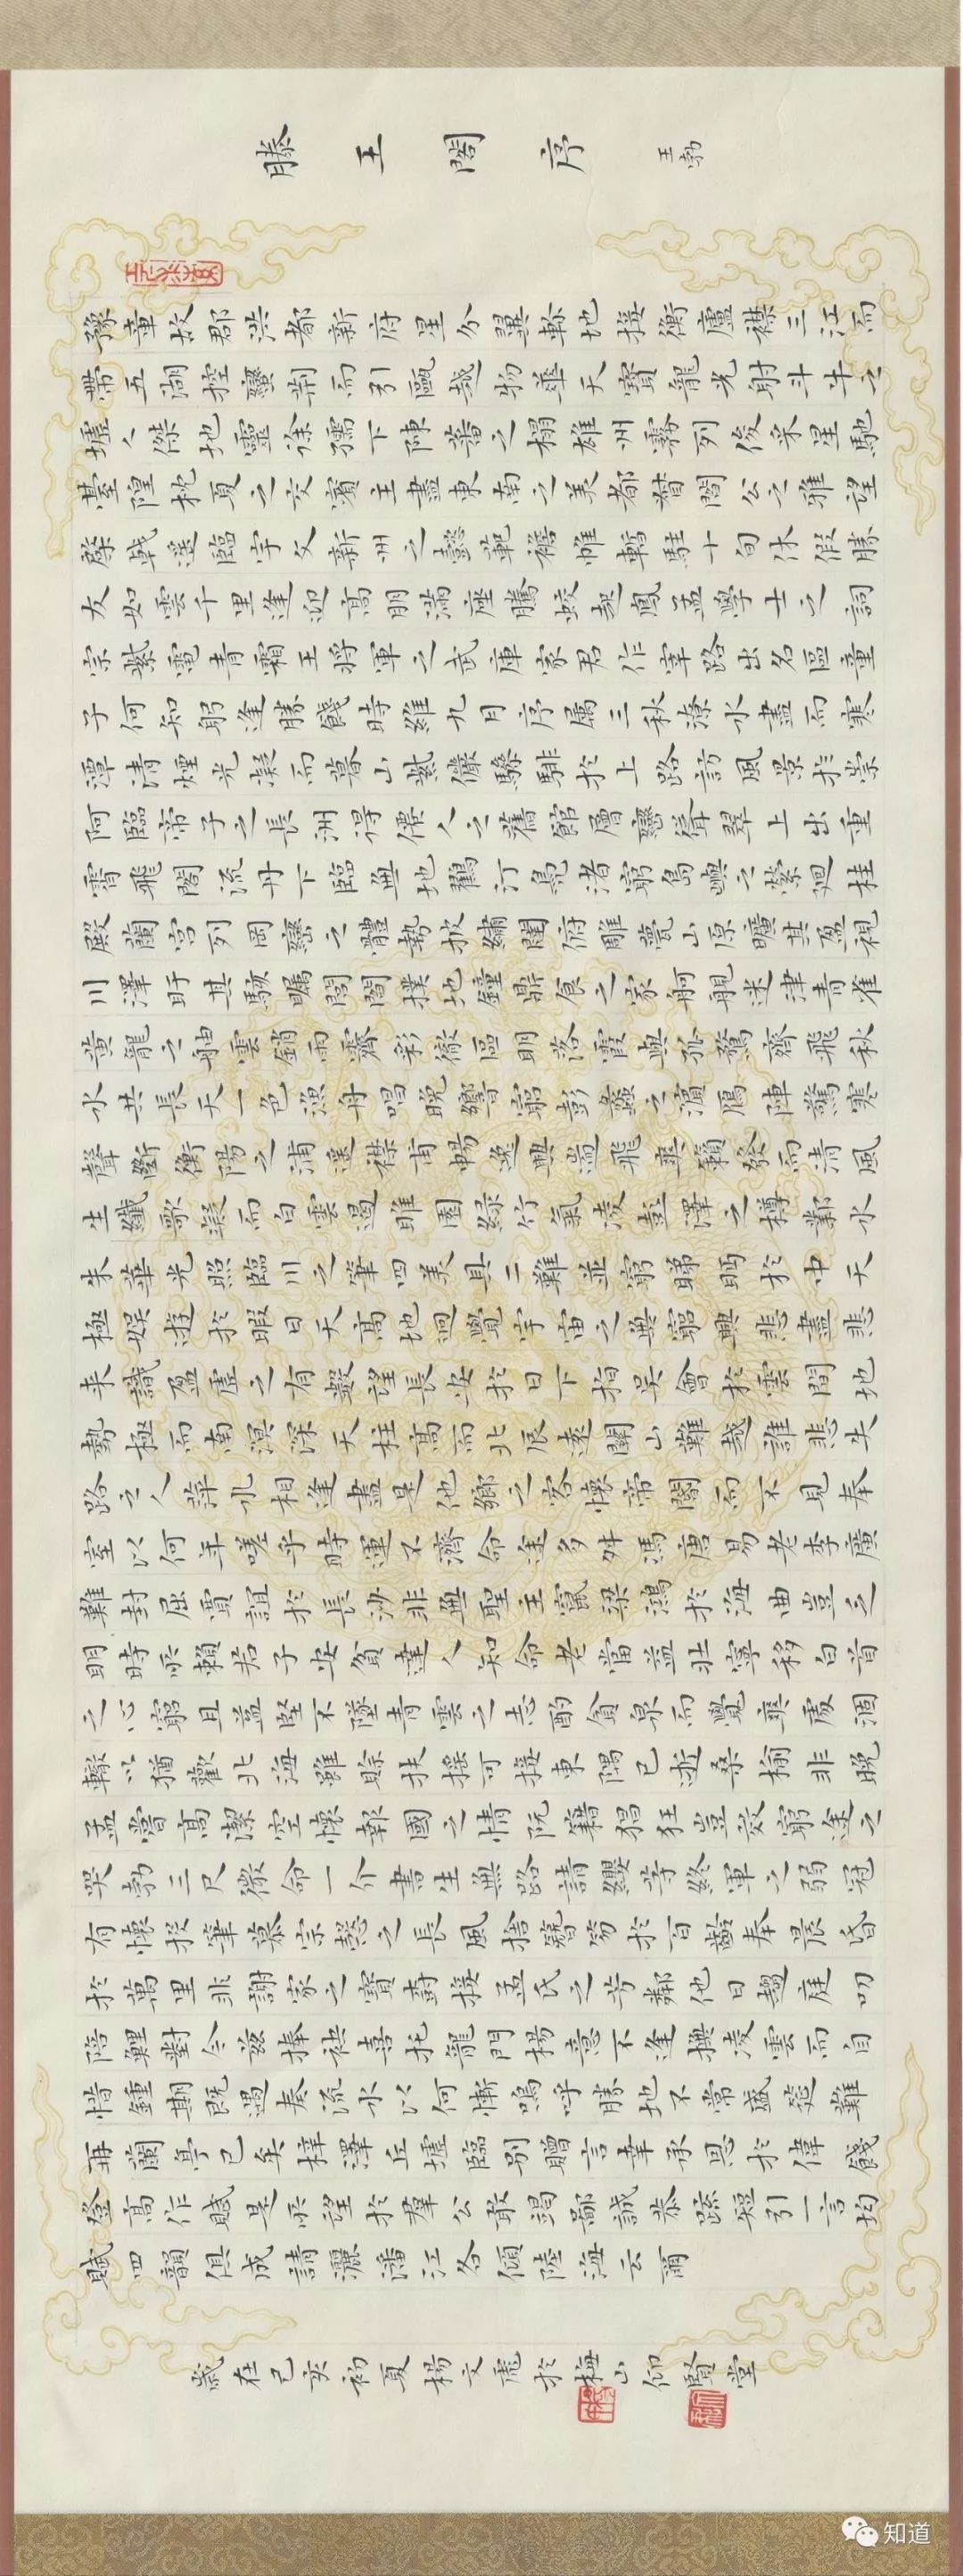 滕王閣序 王勃
豫章故郡洪都新府星分翼軫地接衡廬襟三江而
帶五湖控蠻荊而引甌越物華天寶龍光射斗牛之
墟人傑地靈徐孺下陳蕃之榻雄州霧列俊采星馳
臺隍枕夏之交賓主盡東南之美都督閻公之雅望
棨戟遙臨宇文新州之懿範襜帷暫駐十旬休假勝
友如雲千里逢迎高朋滿座騰蛟起鳳孟學士之詞
宗紫電青霜王將軍之武庫家君作宰路出名區童
子何知躬逢勝餞時維九月序屬三秋潦水盡而寒
潭清煙光凝而暮山紫儼驂騑於上路訪風景於崇
阿臨帝子之長洲得僊人之舊館層巒聳翠上出重
霄飛閣流丹下臨無地鶴汀鳧渚窮島嶼之縈迴桂
殿蘭宮列岡巒之體勢披繡闥俯雕甍山原曠其盈視
川澤盱其駭矚閭閻撲地鐘鼎食之家舸艦迷津青雀
黃龍之舳雲銷雨霽彩徹區明落霞與孤鶩齊飛秋
水共長天一色漁舟唱晚響窮彭蠡之濱鴈陣驚寒
聲斷衡陽之浦遙襟甫暢逸興遄飛爽籟發而清風
生纖歌凝而白雲遏睢園綠竹氣凌彭澤之樽鄴水
朱華光照臨川之筆四美具二難並窮睇眄於中天
極娛遊於暇日天高地迥覺宇宙之無窮興悲盡悲
來識盈虛之有數望長安於日下指吳會於雲間地
勢極而南溟深天柱高而北辰遠關山難越誰悲失
路之人萍水相逢盡是他鄉之客懷帝閽而不見奉
室以何年嗟乎時運不濟命途多舛馮唐易老李廣
難封屈賈誼於長沙非無聖主竄梁鴻於海曲豈乏
明時所賴君子安貧達人知命老當益壯寧移白首
之心窮且益堅不墜青雲之志酌貪泉而覺爽處涸
轍以猶歡北海雖賒扶搖可接東隅已逝桑榆非晚
孟嘗高潔空懷報國之情阮籍猖狂豈效窮途之
哭勃三尺微命一介書生無路請纓等終軍之弱冠
有懷投筆慕宗愨之長風捨簪笏於百齡奉晨昏
於萬里非謝家之寶樹接孟氏之芳鄰他日趨庭叨
陪鯉對今茲捧袂喜托龍門楊意不逢撫凌雲而自
惜鍾期既遇奏流水以何慚嗚呼勝地不常盛筵難
再蘭亭已矣梓澤丘墟臨別贈言幸承恩於偉餞
登高作賦是所望於羣公敢竭鄙誠恭疏短引一言均
賦四韻俱成請灑潘江各傾陸海云爾
歲在己亥初夏楊文虎於梅山仰賢堂
知道